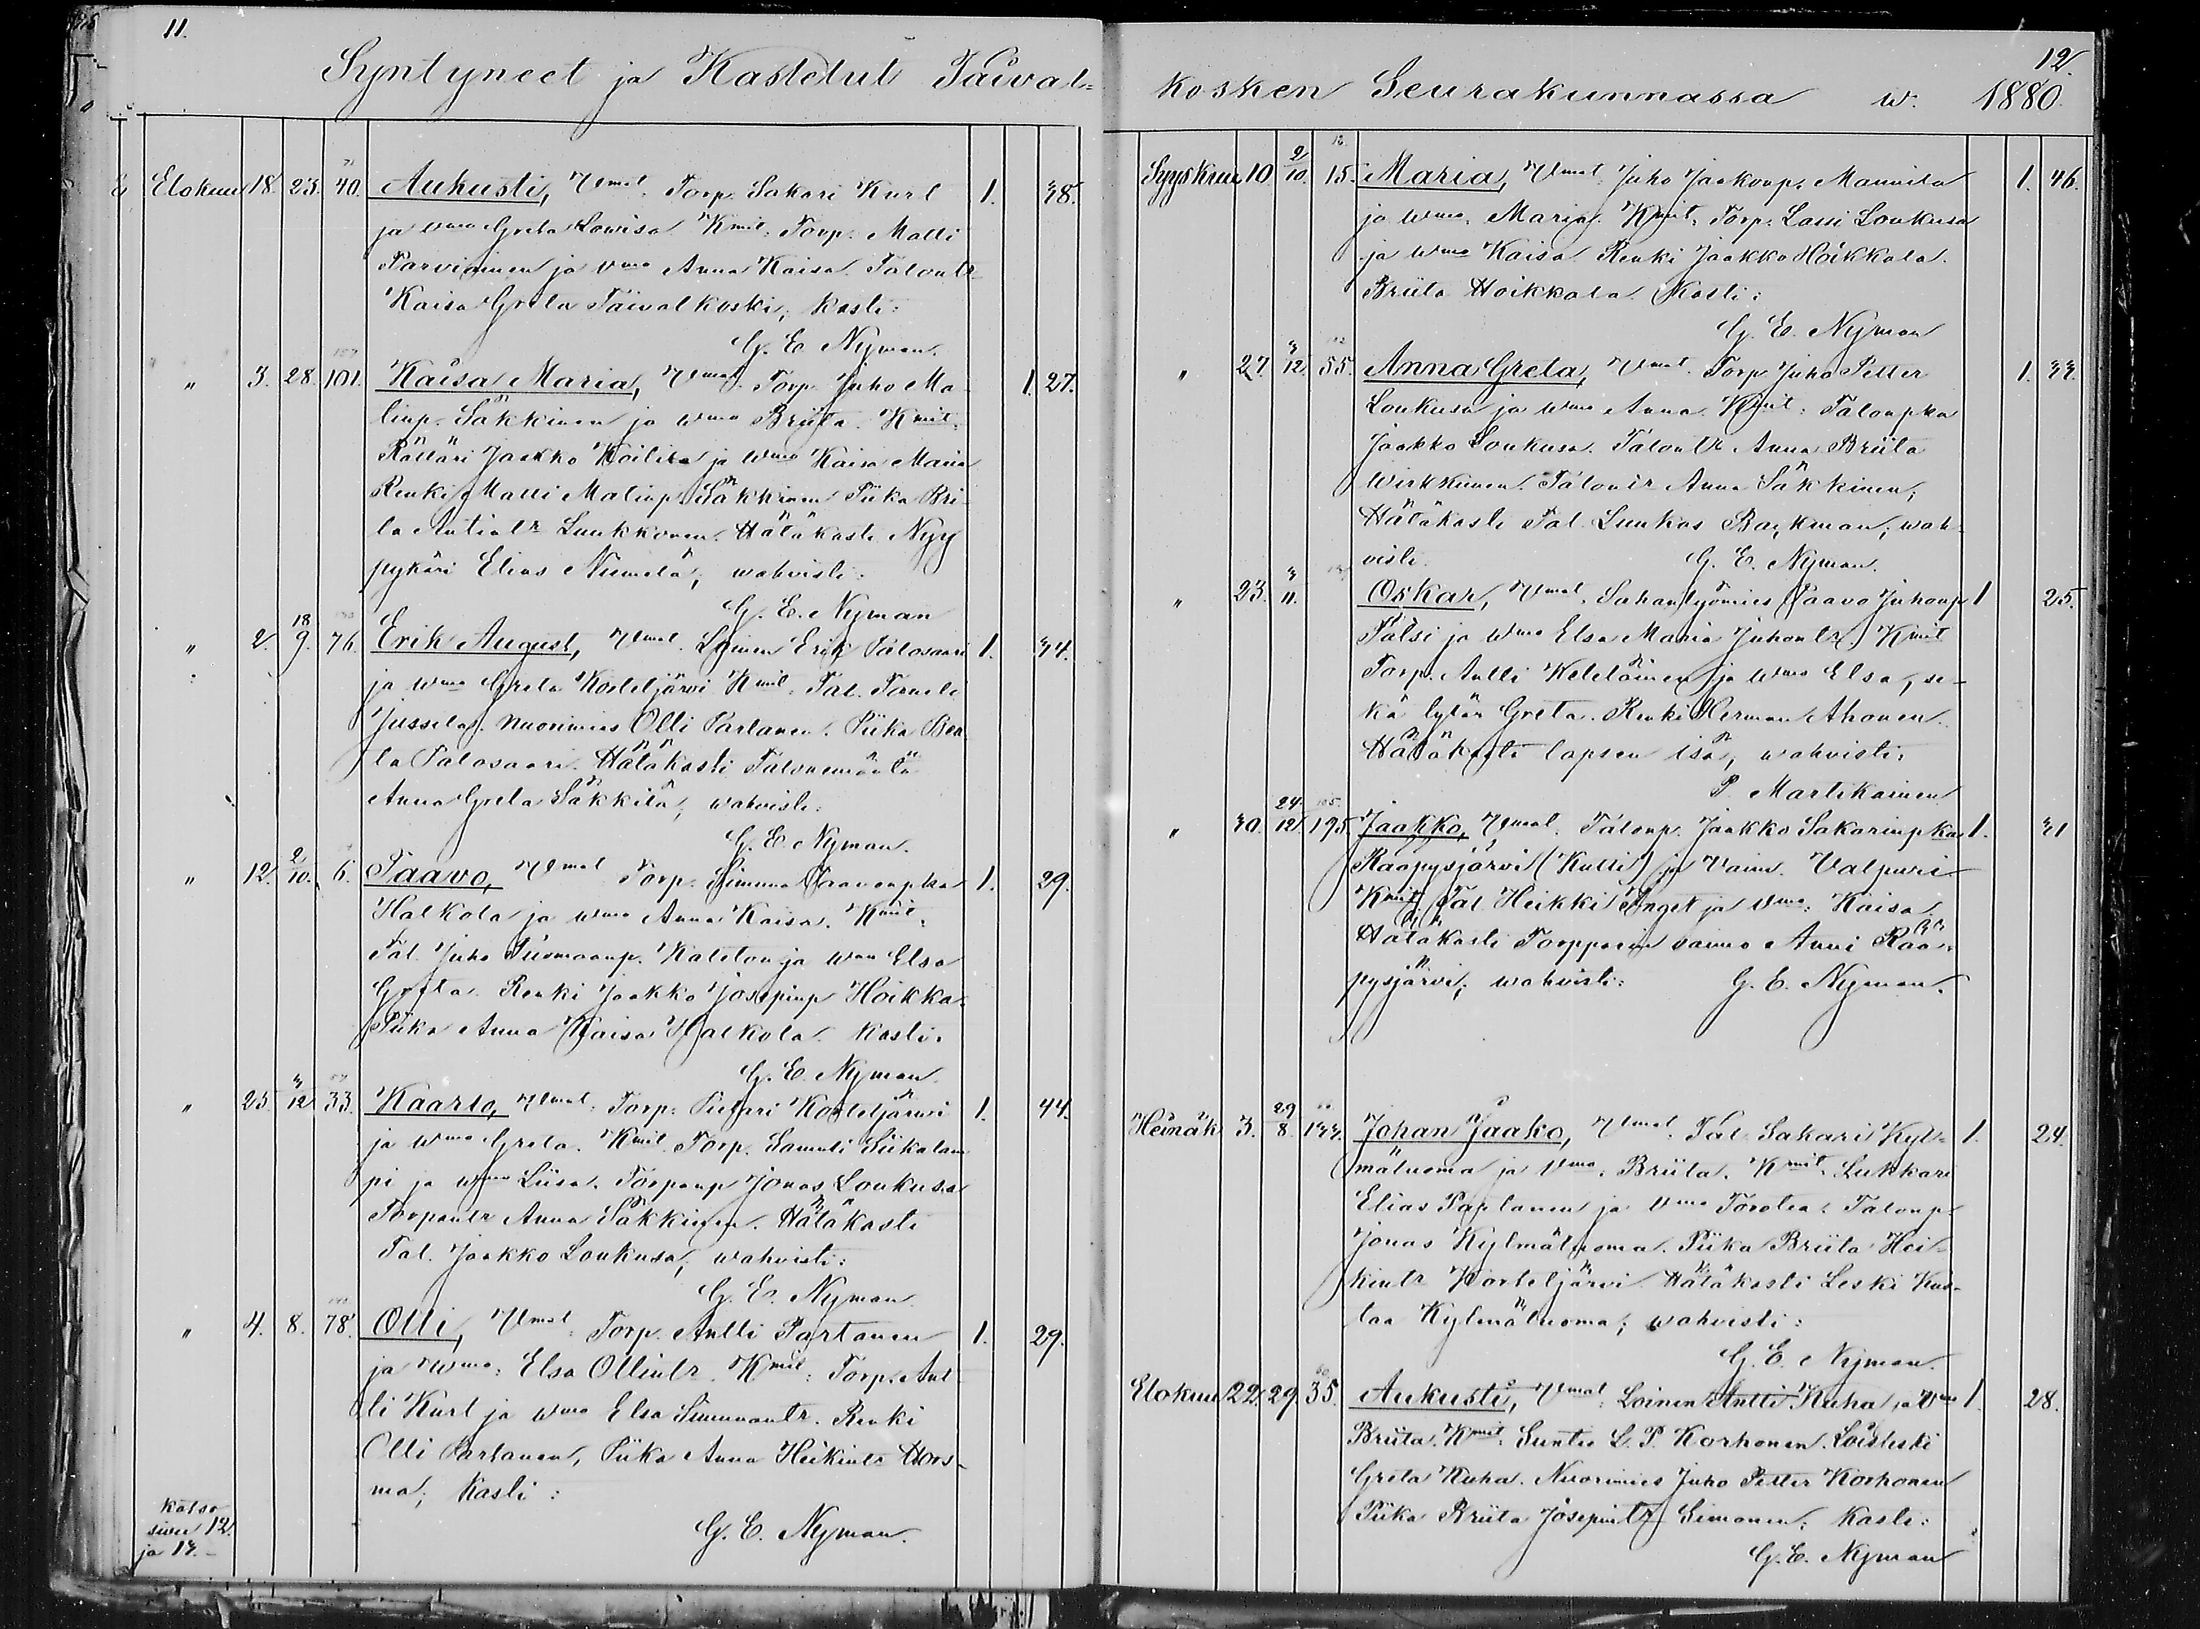 11.
Syntyneet ja Kastetut Taival=
Elokuu 18. 23. 40. Aukusti, Vmat. Torp. Sakari Kurt 1. 38.
ja wmo Greta Lowisa. Kmit. Torp. Matti
Parviainen ja vmo Anna Kaisa. Talontr
Kaisa Greta Taivalkoski; kasti:
G. E. Nyman.
" 3. 28. 101. Kaisa Maria, Vmat. Torp. Juho Ma- 1. 27.
tinp. Säkkinen ja wmo Briita. Kmit.
Rättäri Jaakko ja wmo Kaisa Maria
Renki Matti Matinp. Säkkinen Piika Bri-
ta Antintr Luukkonen. Hätäkasti Nyy
pykäri Elias Niemelä; wahvisti:
G. E. Nyman
" 2. 18/9. 76. Erik August, Vmat. Loinen Erik Palosaari 1. 34.
ja wmo Greta Kosteljärvi Kmit. Tal.
Jussila. Nuorimies Olli Partanen. Piika Bea
ta Palosaari. Hätäkasti Talonemäntä
Anna Greta Säkkilä; wahvisti:
G. E. Nyman.
" 12. 2/10. 6. Paavo, Vmat Torp. Simuna Paavonpka 1. 29.
Halkola ja wmo Anna Kaisa. Kmit.
Tal. Juho Tuomaanp. ja wmo Elsa
Greta. Renki Jaakko Josepinp Hoikka.
Piika Anna Kaisa Halkola. Kasti:
G. E. Nyman.
" 25. 3/12 33. Kaarlo, Vmat. Torp. Pietari Kosteljärvi 1. 44.
ja wmo Greta. Kmit Torp. Samuli Siikalam
pi ja wmo Liisa. Torpanp Jonas Loukusa
Torpantr Anna Säkkinen. Hätäkasti
Tal. Jaakko Loukusa; wahvisti:
G. E. Nyman
" 4. 8. 78. Olli, Vmat. Torp. Antti Partanen 1. 29.
ja wmo: Elsa Ollintr. Kmit: Torp. Ant
ti Kurt ja wmo Elsa Simunantr. Renki
Olli Partanen, Piika Anna Heikintr Hoos-
ma; Kasti:
G. E. Nyman.
Katso
sivu 12.
ja 13.-
12.
kosken Seurakunnassa w. 1880.
Syyskuu 10 2/10. 15. Maria, Vmat. Juho Jaakonp. Mannila 1. 46.
ja wmo. Maria. Kmit. Torp. Lassi Loukusa
ja wmo Kaisa Renki Jaakko Hoikkala.
Briita Hoikkala. Kasti:
G. E. Nyman
" 27. 3/12. 55. Anna Greta, Vmat. Torp Juho Petter 1. 33.
Loukusa ja wmo Anna. Kmit: Talonpka
Jaakko Loukusa. Talontr Anna Briita
Wirkkunen. Talontr Anna Säkkinen,
Hätäkasti Tal. Luukas Backman; wah-
visti. G. E. Nyman.
" 23. 3/11. Oskar, Vmat. Sahantyömies Paavo Juhonp 1 25.
Palsi ja wmo Elsa Maria Juhontr. Kmit
Torp. Antti Keteläinen ja wmo Elsa, se-
kä tytär Greta. Renki Herman Ahonen.
Hätäkasti lapsen isä, wahvisti:
P. Martikainen
" 30. 24/12 195. Jaakko, Vmat. Talonp. Jaakko Sakarinpka 1. 31
Rääpysjärvi (Kutti) ja Vaim. Valpuri
Kmit, Tal. Heikki Inget ja Vmo. Kaisa.
Hätäkasti Torpparin vaimo Anni Rää-
pysjärvi; wahvisti: G. E. Nyman.
Heinäk 3. 29/8. 133. Johan Jaako, Vmat. Tal. Sakari Kyl- 1. 24.
mäluoma ja Vmo. Briita. Kmit. Lukkari
Elias Partanen ja Vmo Torotea. Talonp.
Jonas Kylmäluoma. Piika Briita Hei-
kintr Kosteljärvi Hätäkasti Leski Kus-
taa Kylmäluoma; wahvisti:
G. E. Nyman.
Elokuu 22. 29. 35. Aukusti, Vmat: Loinen Antti Kuha, ja Vmo 1. 28.
Briita. Kmit: Suntio L. P. Korhonen. Loisleski
Greta Kuha. Nuorimies Juho Petter Korhonen
Piika Briita Josepintr Simonen; Kasti:
G. E. Nyman